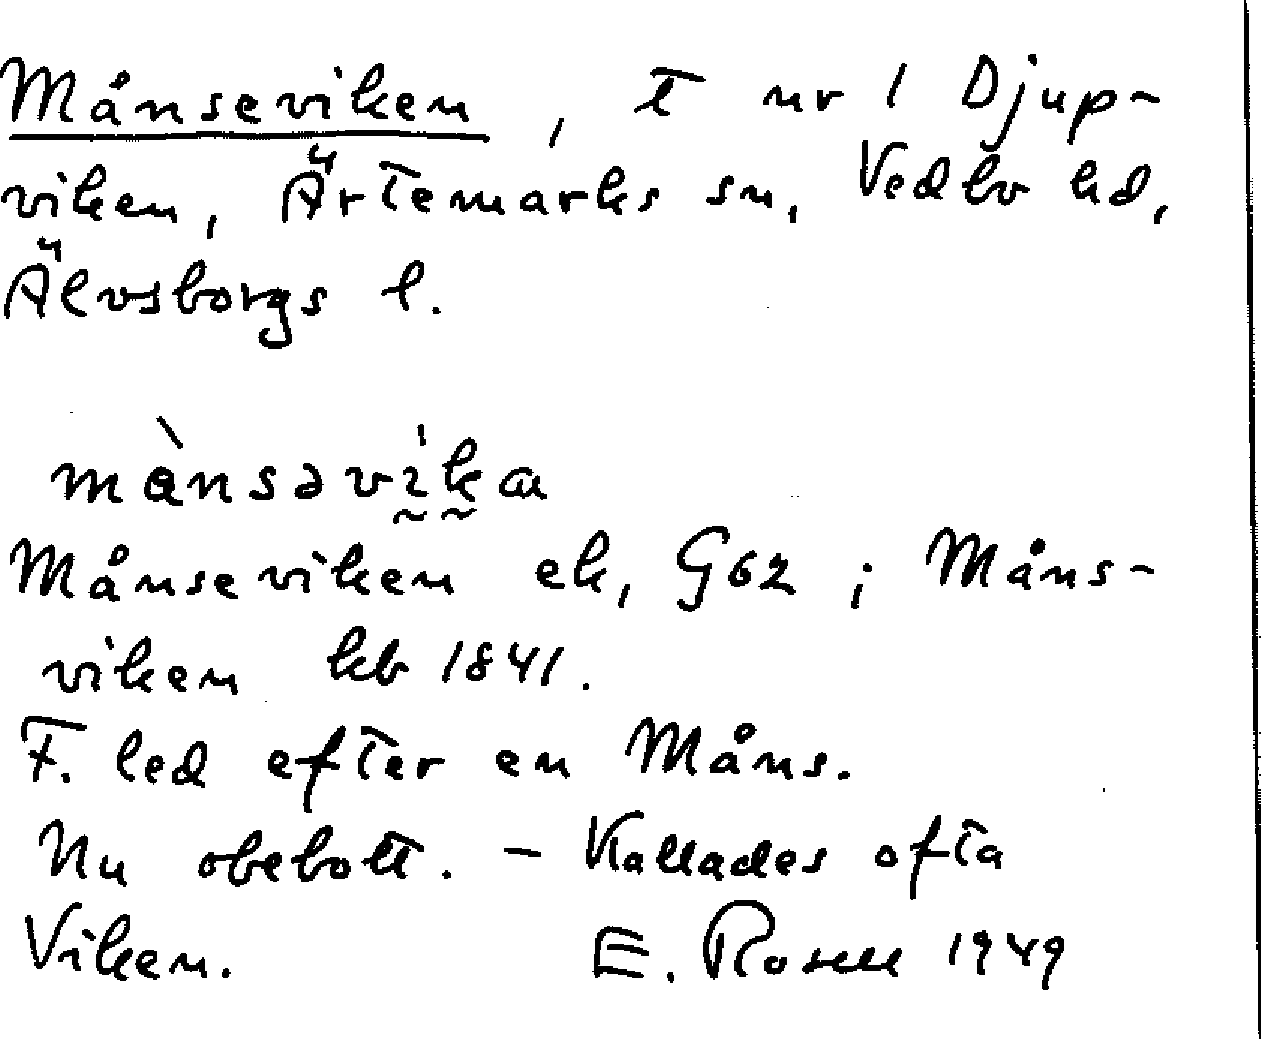 Månseviken, t nr 1 Djup-
viken, Ärtemarks sn, Vedbo hd,
Älvsborgs l.
mànsəvḭk̰a
Månseviken ek, G62; Måns-
viken kb 1841.
F. led efter en Måns.
Nu obebott. – Kallades ofta
Viken. E. Rosell 1949